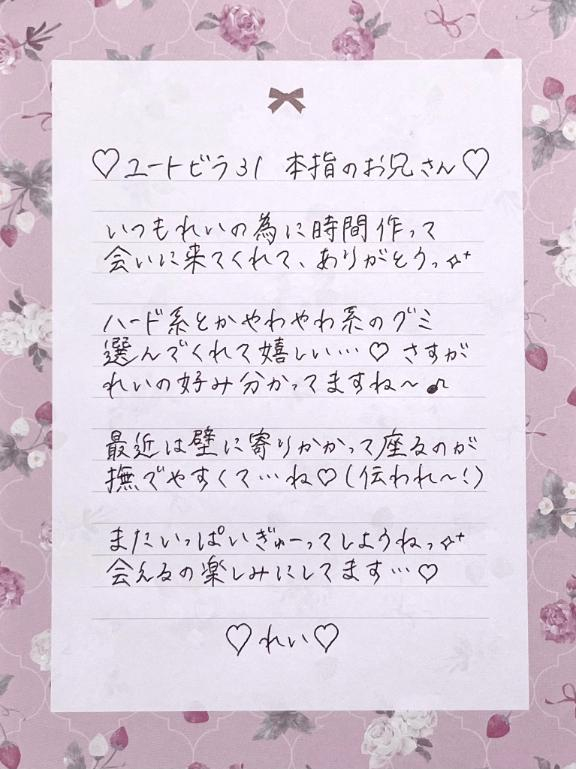 ♡ユートピラ31 本指のお兄さん♡
いつもれいの為に時間作って
会いに来てくれて、ありがとうっ✧⁺
ハード系とかやわやわ系のグミ
選んでくれて嬉しい…♡ さすが
れいの好み分かってますね〜♪
最近は壁に寄りかかって座るのが
撫でやすくて…ね♡(伝われ〜!)
またいっぱいぎゅーってしようねっ✧⁺
会えるの楽しみにしてます…♡
♡れい♡